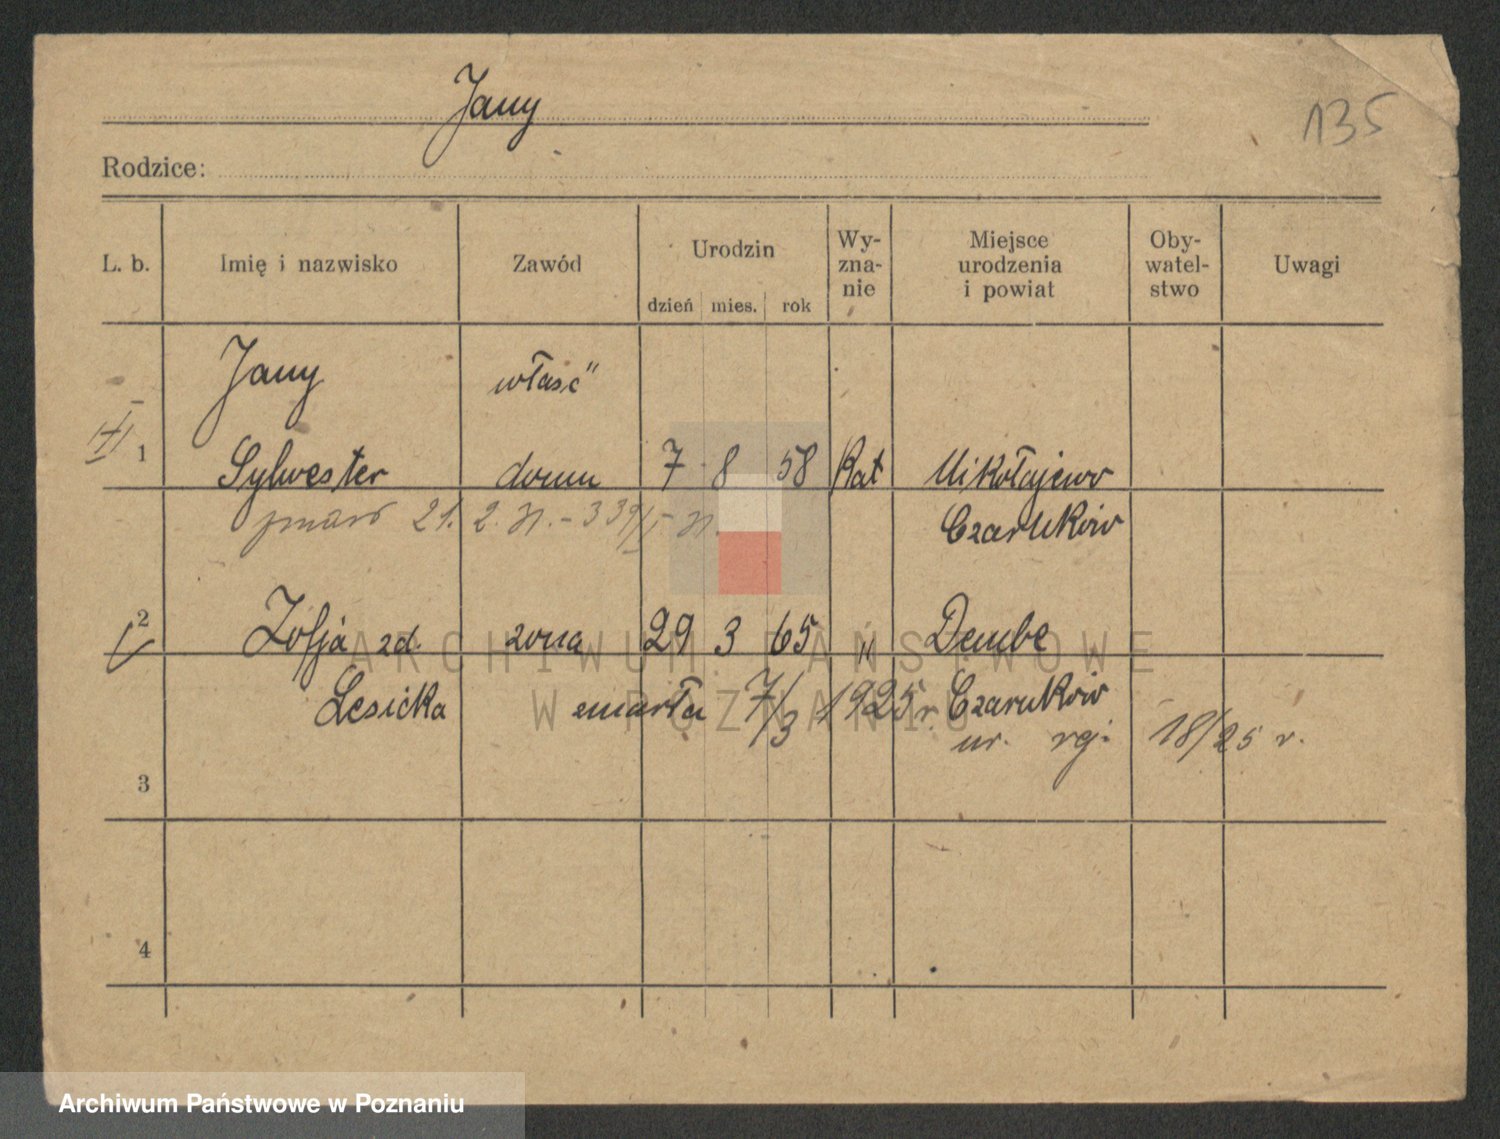 Jany
135
Rodzice:
L. b. Imię i nazwisko Zawód Urodzin dzień mies. rok Wy- zna- nie Miejsce urodzenia i powiat Oby- watel- stwo Uwagi
Jany właść"
1 Sylwester domu 7 8 58 Kat Mikołajewo
zmarł 21. 2. Czarnków
2 Zofja zd. żona 29 3 65 " Dembe
Lesicka zmarła 7/3 1925 r Czarnków
nr. rej. 18/25 r.
3
4
ARCHIWUM PAŃSTWOWE
W POZNANIU
Archiwum Państwowe w Poznaniu